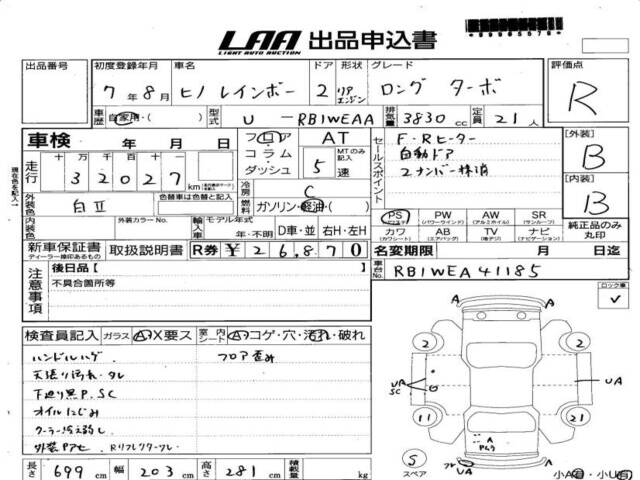 LAA 出品申込書
LIGHT AUTO AUCTION
出品番号 初度登録年月 車名 ドア 形状 グレード 評価点
7年8月 ヒノ レインボー 2 リアエンジン ロング ターボ R
車歴 自家用・( ) 型式 U-RB1WEAA 排気量 3830cc 定員 21人
車検 年 月 日
フロア・コラム・ダッシュ
AT
MTのみ記入
5速
セールスポイント
F・Rヒーター
自動ドア
2ナンバー抹消
[外装]
B
[内装]
B
現在色を記入
走行 十 万 千 百 十
32027 km
冷房 C
外装色 白II 色替車は色替と記入 燃料 ガソリン・軽油・( )
内装色 外装カラーNo. 輸入車 モデル年式 年・不明 D車・並 右H・左H
PS (パワステ) PW (パワーウインド) AW (アルミホイル) SR (サンルーフ)
カワ (カワシート) AB (エアバッグ) TV (地デジ) ナビ (ナビゲーション)
純正品のみ丸印
新車保証書 取扱説明書 R券 ¥26,870
ディーラー捺印あるもの
名変期限 月 日迄
車台No. RB1WEA41185
注意事項
後日品[ ]
不具合箇所等
ロック車
✓
検査員記入 ガラス A・X要ス 室内 シート A・コゲ・穴・汚れ・破れ
ハンドルハゲ フロア歪み
天張り汚れ・タレ
下廻り黒P.SC
オイルにじみ
クーラー冷え弱し
外装Pアセ Rリフレクターワレ
A A
2 2
UA
SC
UA
11 21
A
S
スペア
UA
長さ 699cm 幅 203cm 高さ 281cm 積載量 kg
小A有・小U有